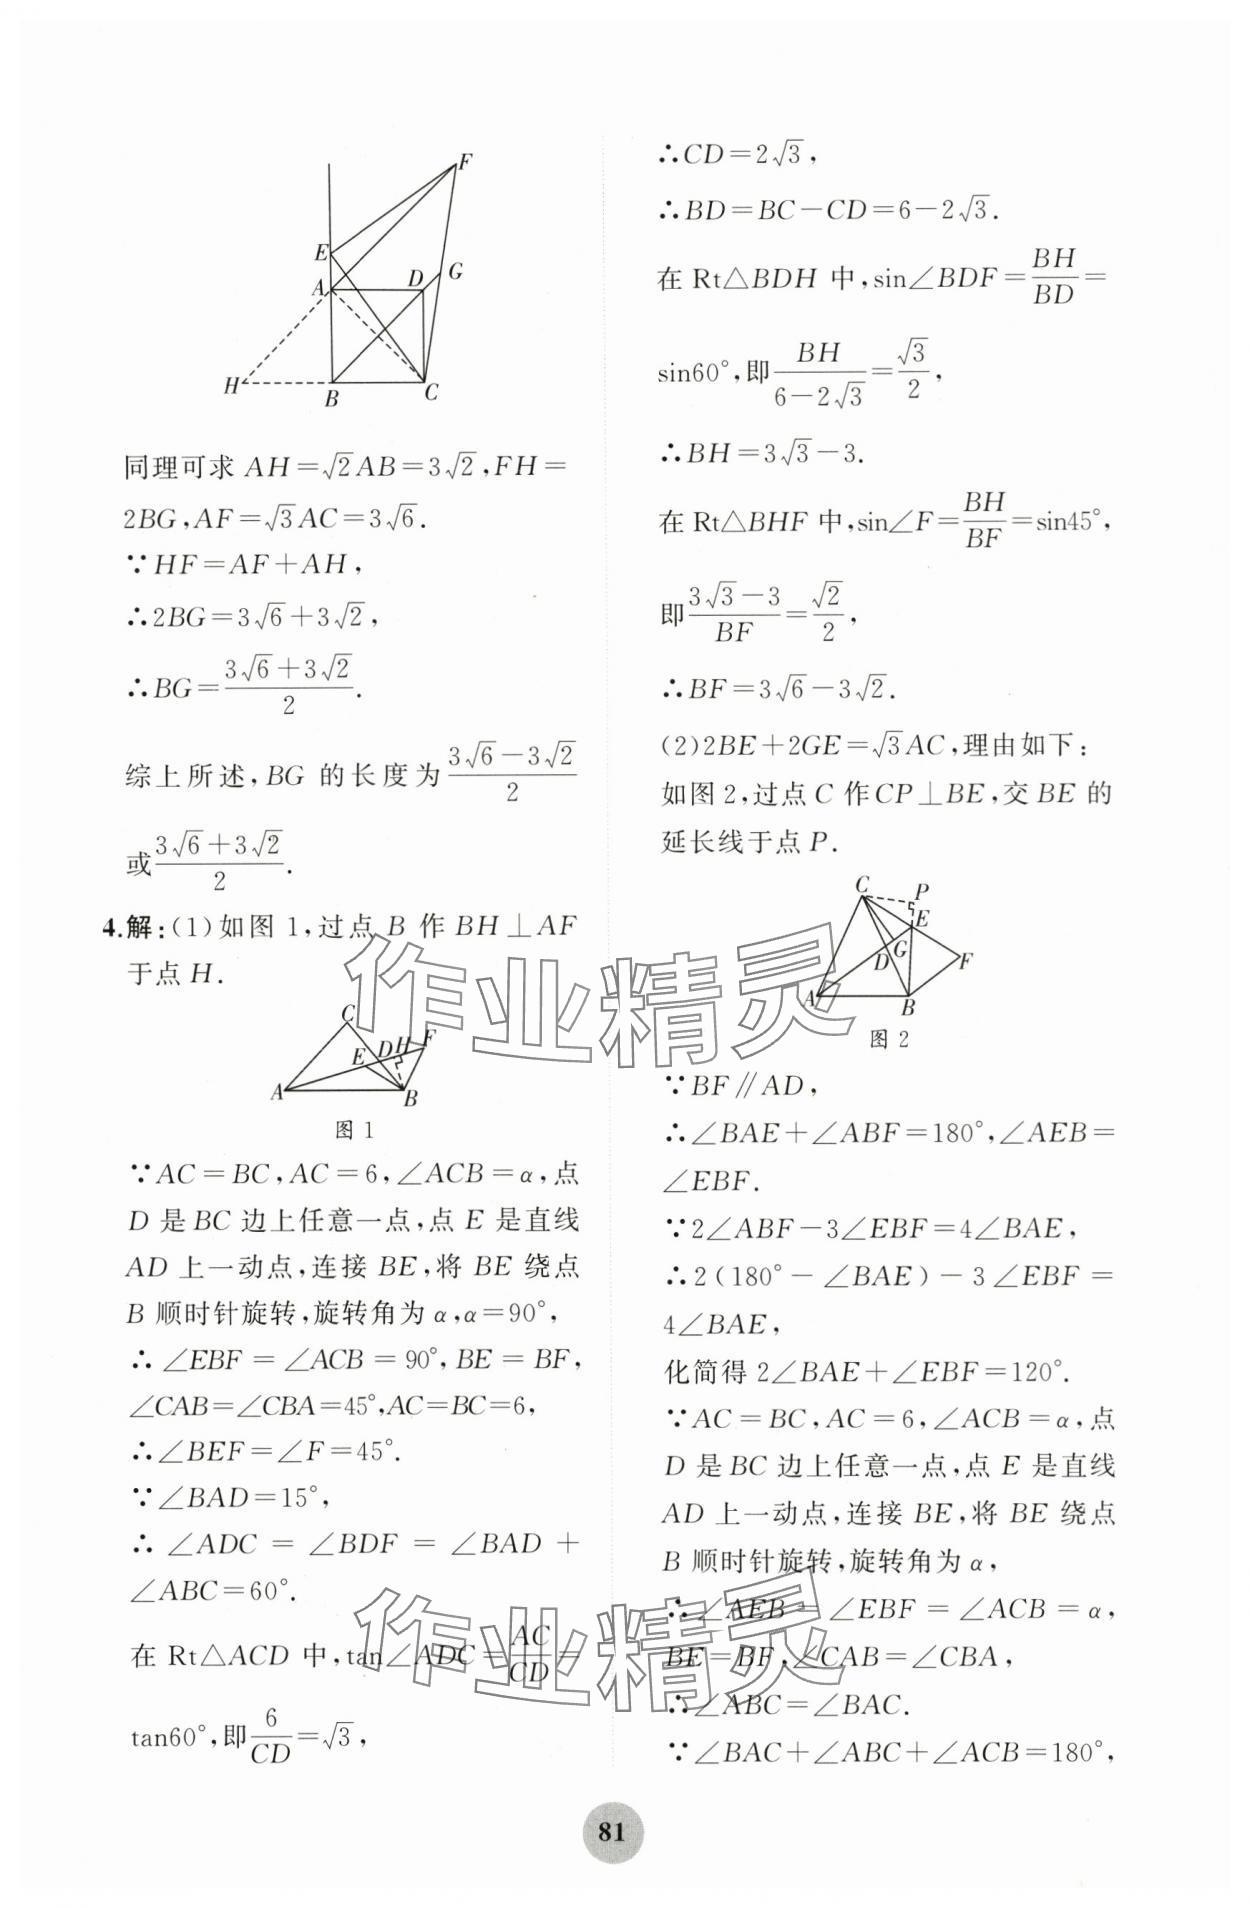 F
E
A
D
G
H
B
C
同理可求 AH=√2AB=3√2,FH=
2BG,AF=√3AC=3√6.
∵HF=AF+AH,
∴2BG=3√6+3√2,
∴BG=(3√6+3√2)/2.
综上所述,BG 的长度为(3√6-3√2)/2
或(3√6+3√2)/2.
4.解:(1)如图1,过点 B 作 BH⊥AF
于点 H.
C
E D H F
A B
图 1
∵AC=BC,AC=6,∠ACB=α,点
D 是 BC 边上任意一点,点 E 是直线
AD 上一动点,连接 BE,将 BE 绕点
B 顺时针旋转,旋转角为 α,α=90°,
∴∠EBF=∠ACB=90°,BE=BF,
∠CAB=∠CBA=45°,AC=BC=6,
∴∠BEF=∠F=45°.
∵∠BAD=15°,
∴∠ADC=∠BDF=∠BAD+
∠ABC=60°.
在 Rt△ACD 中,tan∠ADC=AC/CD=
tan60°,即6/CD=√3,
∴CD=2√3,
∴BD=BC-CD=6-2√3.
在 Rt△BDH 中,sin∠BDF=BH/BD=
sin60°,即BH/(6-2√3)=√3/2,
∴BH=3√3-3.
在 Rt△BHF 中,sin∠F=BH/BF=sin45°,
即(3√3-3)/BF=√2/2,
∴BF=3√6-3√2.
(2)2BE+2GE=√3AC,理由如下:
如图2,过点 C 作 CP⊥BE,交 BE 的
延长线于点 P.
C P
E
D G F
A B
图 2
∵BF∥AD,
∴∠BAE+∠ABF=180°,∠AEB=
∠EBF.
∵2∠ABF-3∠EBF=4∠BAE,
∴2(180°-∠BAE)-3∠EBF=
4∠BAE,
化简得 2∠BAE+∠EBF=120°.
∵AC=BC,AC=6,∠ACB=α,点
D 是 BC 边上任意一点,点 E 是直线
AD 上一动点,连接 BE,将 BE 绕点
B 顺时针旋转,旋转角为 α,
∴∠AEB=∠EBF=∠ACB=α,
BE=BF,∠CAB=∠CBA,
∴∠ABC=∠BAC.
∵∠BAC+∠ABC+∠ACB=180°,
81
作业精灵
作业精灵